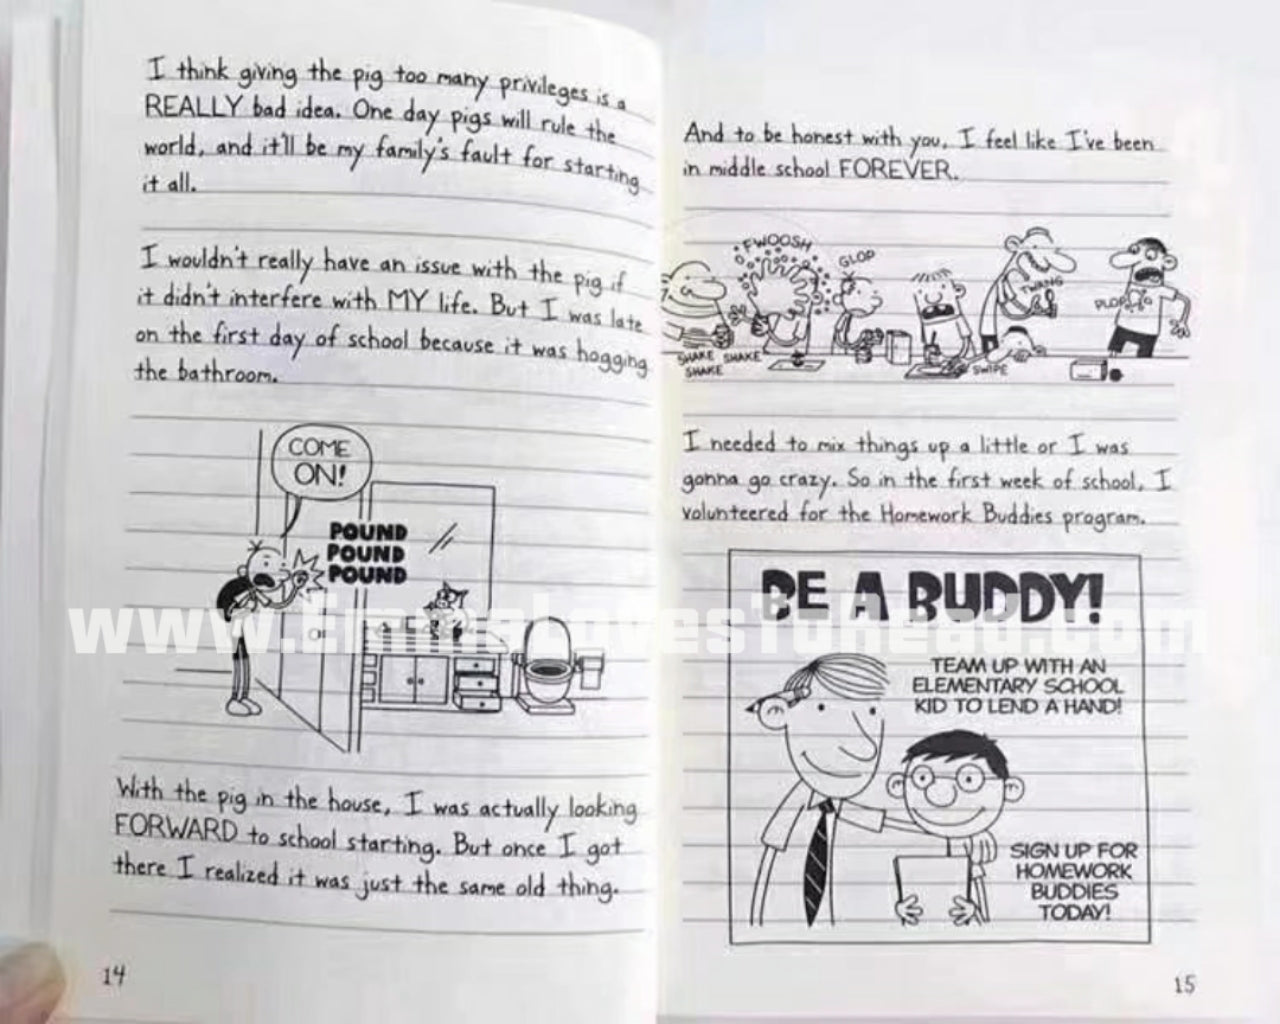 I think giving the pig too many privileges is a
REALLY bad idea. One day pigs will rule the
world, and it'll be my family's fault for starting
it all.
I wouldn't really have an issue with the pig if
it didn't interfere with MY life. But I was late
on the first day of school because it was hogging
the bathroom.
COME
ON!
POUND
POUND
POUND
With the pig in the house, I was actually looking
FORWARD to school starting. But once I got
there I realized it was just the same old thing.
14
And to be honest with you, I feel like I've been
in middle school FOREVER.
FWOOSH
GLOP
TWANG
PLOP
SHAKE SHAKE
SHAKE
SWIPE
I needed to mix things up a little or I was
gonna go crazy. So in the first week of school, I
volunteered for the Homework Buddies program.
BE A BUDDY!
TEAM UP WITH AN
ELEMENTARY SCHOOL
KID TO LEND A HAND!
SIGN UP FOR
HOMEWORK
BUDDIES
TODAY!
15
www.EmmaLovesToRead.com